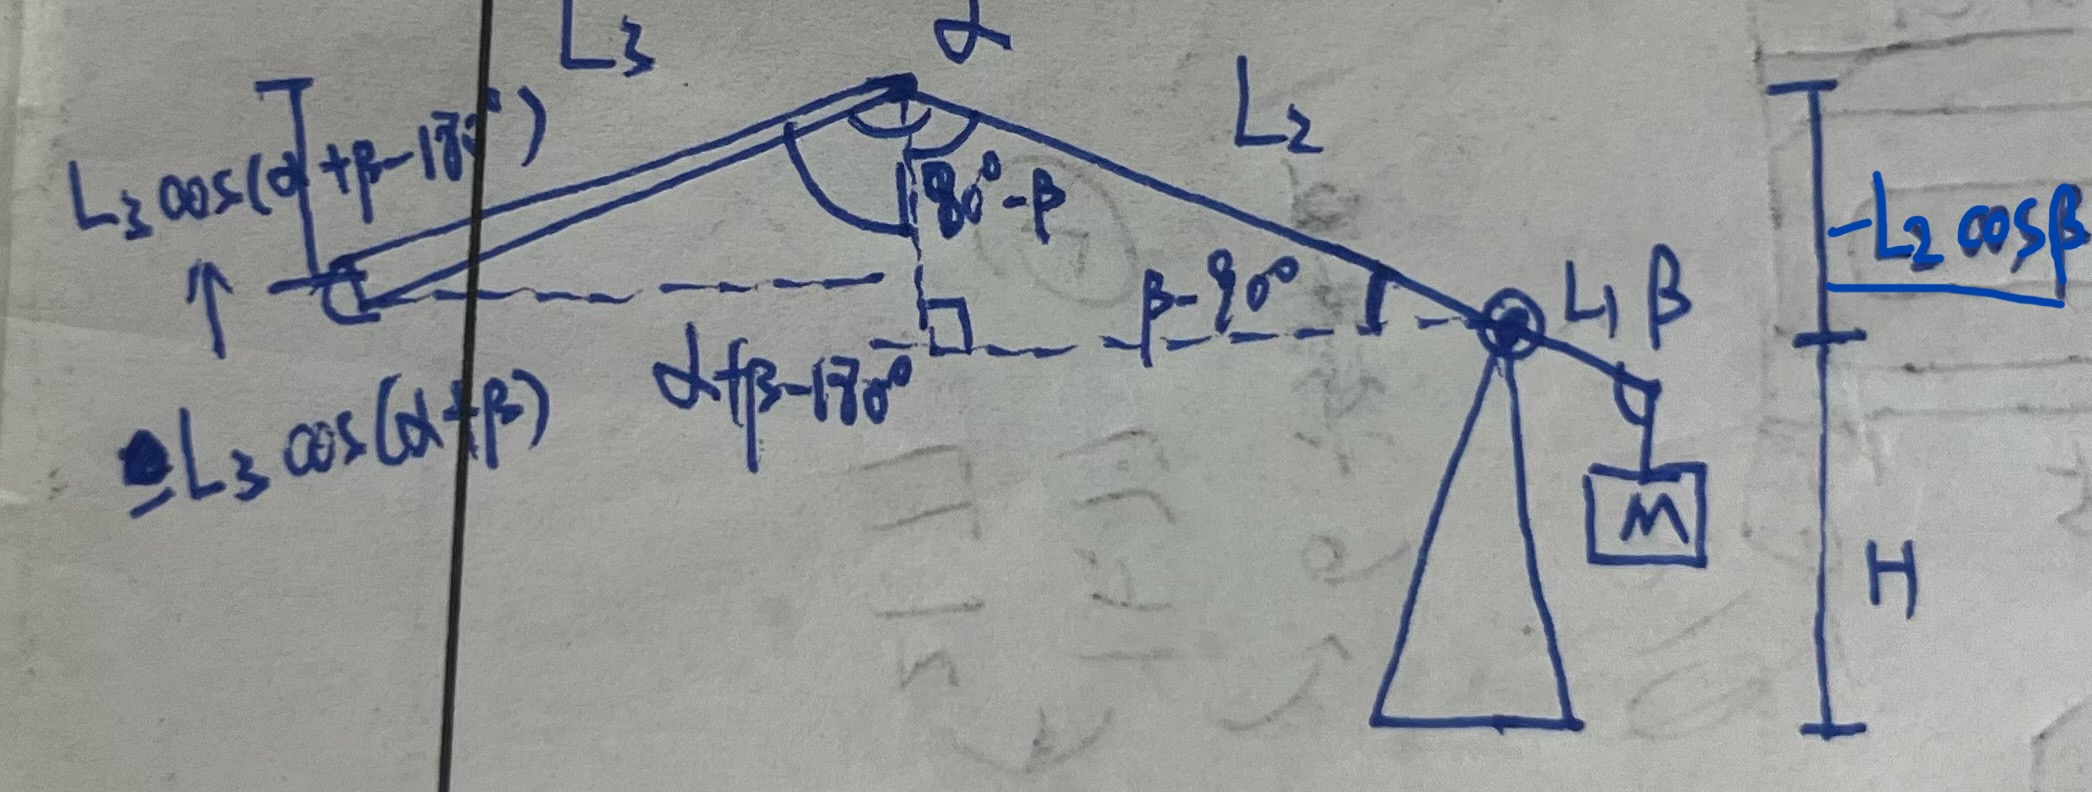 L₃
α
L₂
L₃ cos(α+β-180°)
180°-β
-L₂ cosβ
β-90°
L₁
β
α+β-180°
-L₃ cos(α+β)
M
H